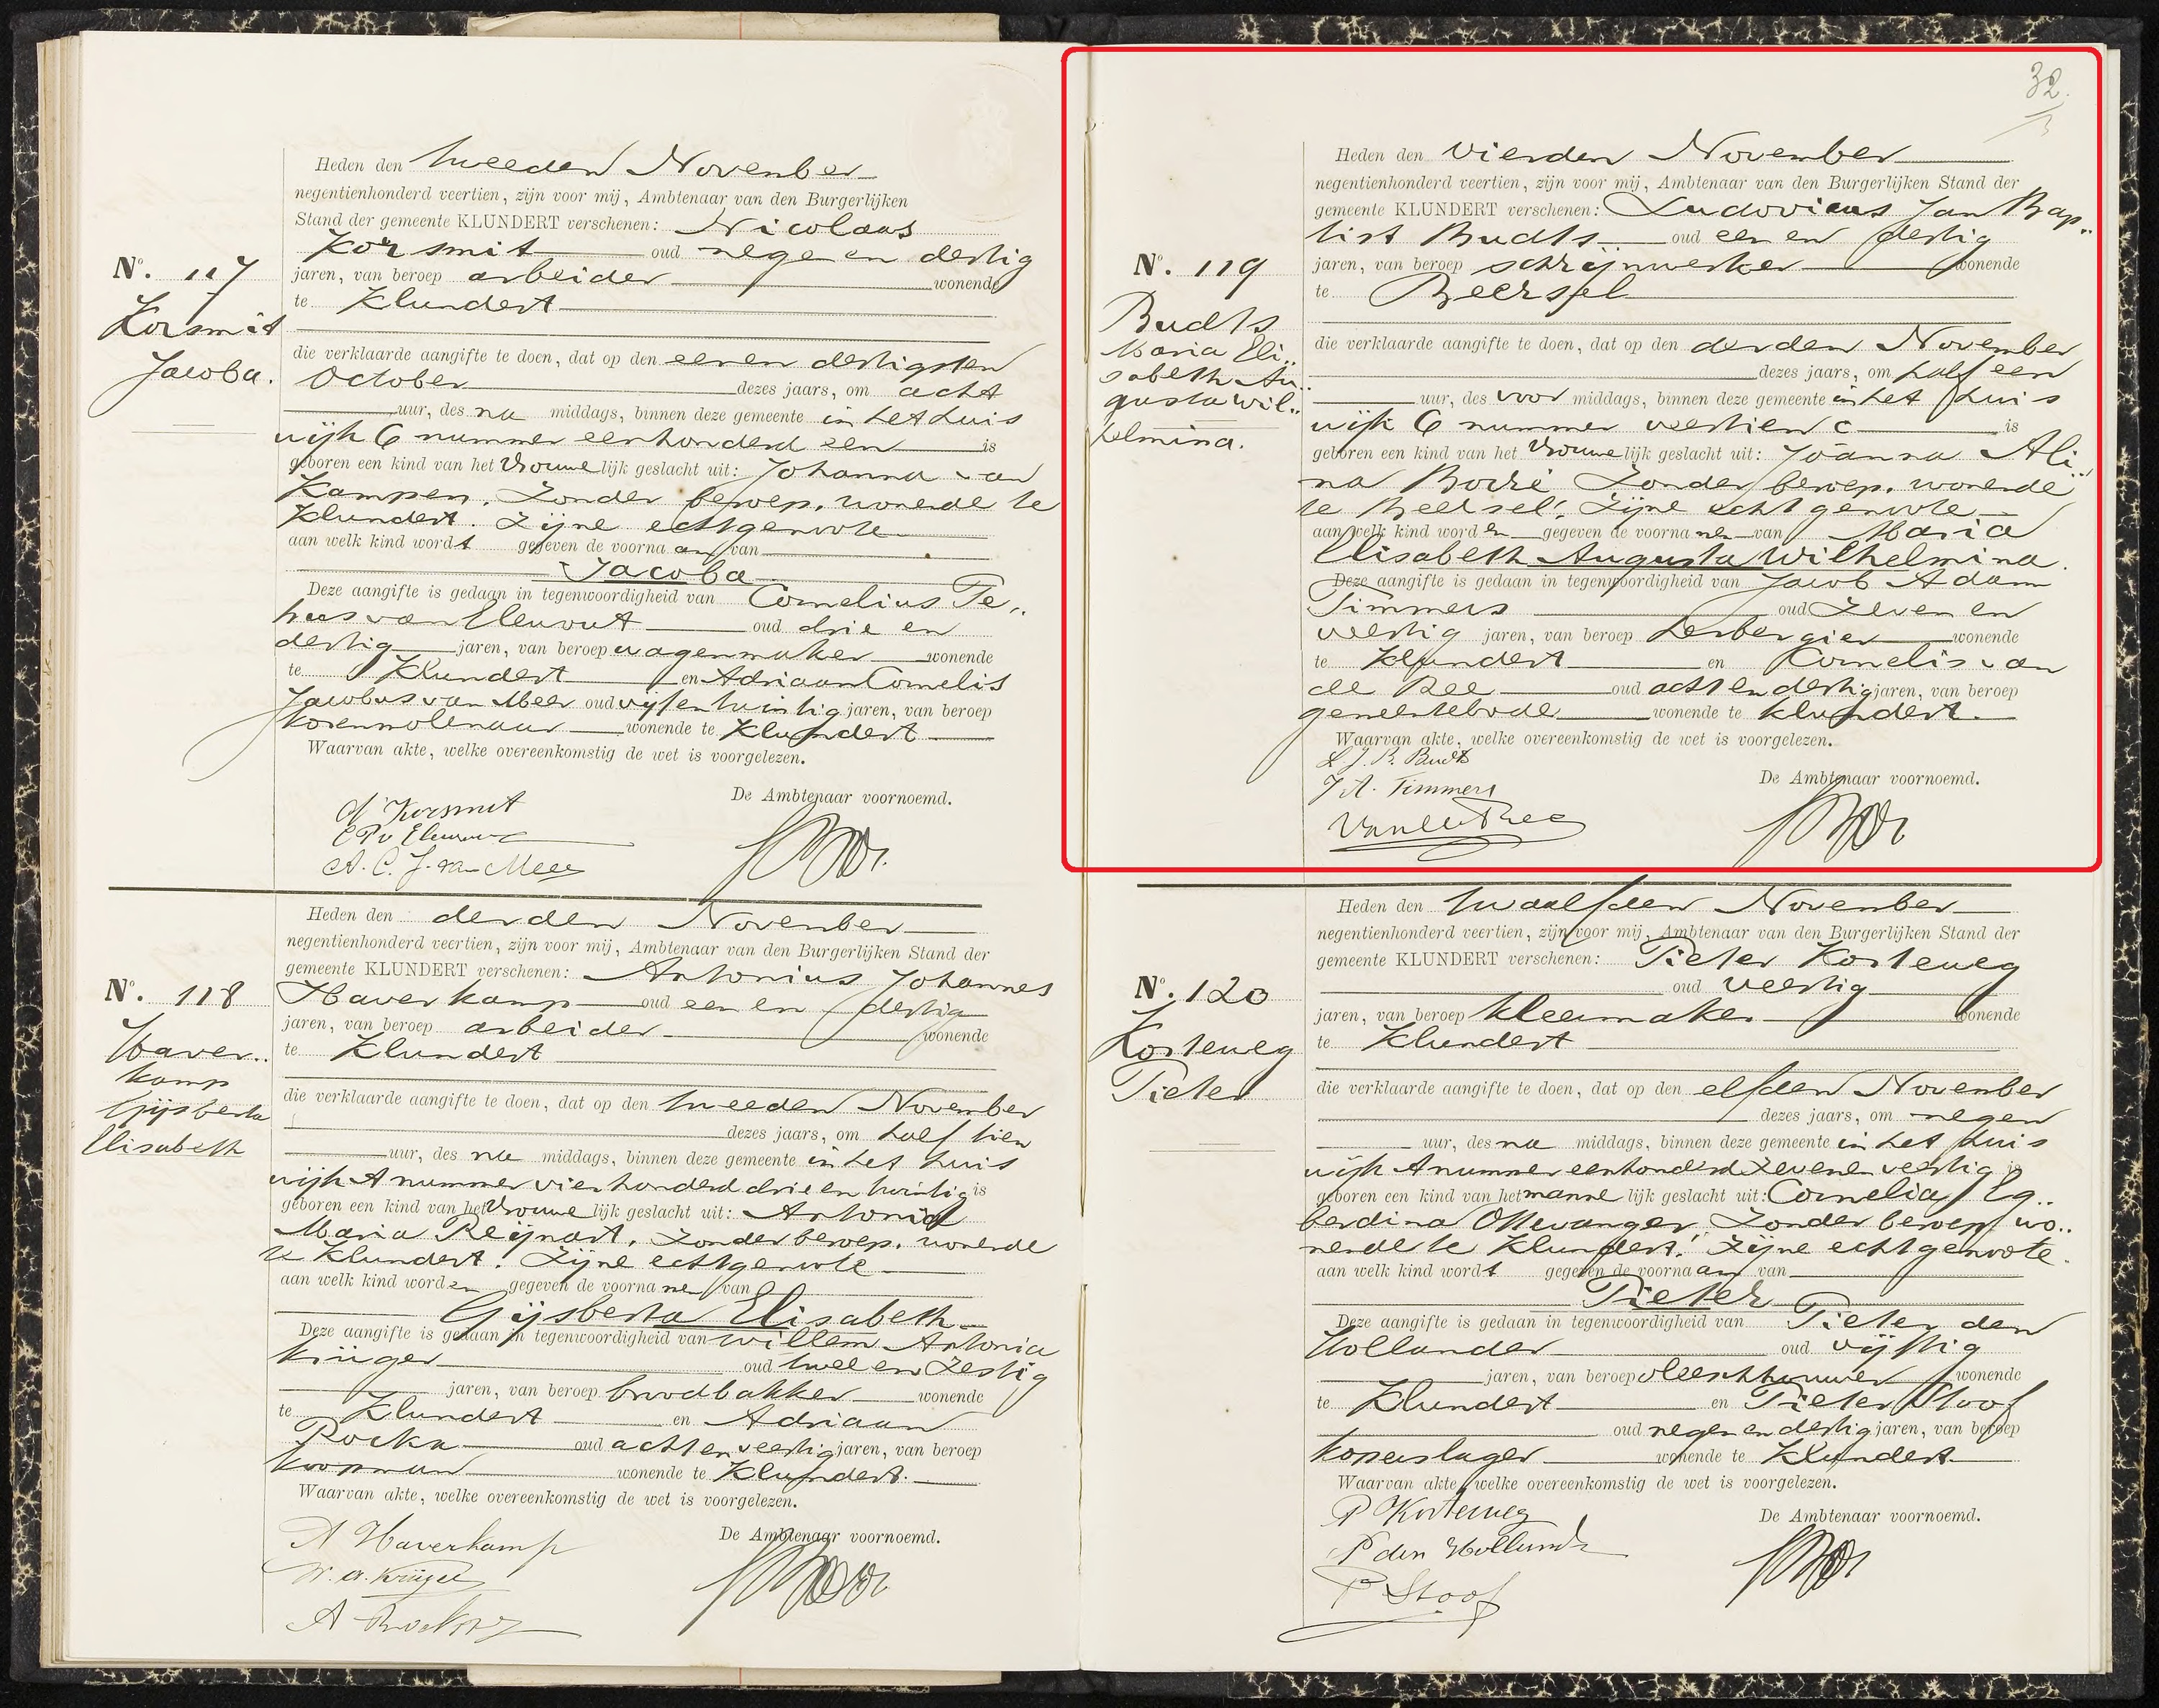 Heden den tweeden November
negentienhonderd veertien, zijn voor mij, Ambtenaar van den Burgerlijken
Stand der gemeente KLUNDERT verschenen: Nicolaas
Korsmit oud negen en dertig
jaren, van beroep arbeider wonende
te Klundert
No. 117
Korsmit
Jacoba.
die verklaarde aangifte te doen, dat op den een en dertigsten
October dezes jaars, om acht
uur, des na middags, binnen deze gemeente in het huis
wijk C nummer eenhonderd een is
geboren een kind van het vrouwelijk geslacht uit: Johanna van
Kampen, Zonder beroep, wonende te
Klundert. Zijne echtgenoote
aan welk kind wordt gegeven de voornaam van
Jacoba
Deze aangifte is gedaan in tegenwoordigheid van Cornelius Pe„
trus van Elewout oud drie en
dertig jaren, van beroep wagenmaker wonende
te Klundert en Adriaan Cornelis
Jacobus van Meer oud vijf en twintig jaren, van beroep
korenmolenaar wonende te Klundert
Waarvan akte, welke overeenkomstig de wet is voorgelezen.
De Ambtenaar voornoemd.
N Korsmit
A. C. J. van Meer
Heden den derden November
negentienhonderd veertien, zijn voor mij, Ambtenaar van den Burgerlijken Stand der
gemeente KLUNDERT verschenen: Antonius Johannes
Haverkamp oud een en dertig
jaren, van beroep arbeider wonende
te Klundert
No. 118
Haver„
kamp
Gijsberta
Elisabeth
die verklaarde aangifte te doen, dat op den tweeden November
dezes jaars, om half tien
uur, des na middags, binnen deze gemeente in het huis
wijk A nummer vierhonderd drie en twintig is
geboren een kind van het vrouwelijk geslacht uit: Antonia
Maria Reijnart, Zonder beroep, wonende
te Klundert. Zijne echtgenoote
aan welk kind worden gegeven de voornamen van
Gijsberta Elisabeth
Deze aangifte is gedaan in tegenwoordigheid van Willem Antonia
Krüger oud twee en Zestig
jaren, van beroep broodbakker wonende
te Klundert en Adriaan
Rockx oud acht en veertig jaren, van beroep
koopman wonende te Klundert.
Waarvan akte, welke overeenkomstig de wet is voorgelezen.
De Ambtenaar voornoemd.
A Haverkamp
W. A. Krüger
A Rockx
32
Heden den vierden November
negentienhonderd veertien, zijn voor mij, Ambtenaar van den Burgerlijken Stand der
gemeente KLUNDERT verschenen: Ludovicus Jan Bap„
tist Budts oud een en dertig
jaren, van beroep schrijnwerker wonende
te Beersel
No. 119
Budts
Maria Eli„
sabeth Au„
gusta Wil„
helmina.
die verklaarde aangifte te doen, dat op den derden November
dezes jaars, om half een
uur, des voor middags, binnen deze gemeente in het huis
wijk C nummer veertien c is
geboren een kind van het vrouwelijk geslacht uit: Joanna Ali„
na Zonder beroep, wonende
te Beersel. Zijne echtgenoote
aan welk kind worden gegeven de voornamen van Maria
Elisabeth Augusta Wilhelmina.
Deze aangifte is gedaan in tegenwoordigheid van Jacob Adam
Timmers oud Zeven en
veertig jaren, van beroep herbergier wonende
te Klundert en Kornelis van
de Ree oud acht en dertig jaren, van beroep
gemeentebode wonende te Klundert.
Waarvan akte, welke overeenkomstig de wet is voorgelezen.
De Ambtenaar voornoemd.
L. J. B. Budts
J A. Timmers
Van de Ree
Heden den twaalfden November
negentienhonderd veertien, zijn voor mij, Ambtenaar van den Burgerlijken Stand der
gemeente KLUNDERT verschenen: Pieter Korteweg
oud veertig
jaren, van beroep kleermaker wonende
te Klundert
No. 120
Korteweg
Pieter
die verklaarde aangifte te doen, dat op den elfden November
dezes jaars, om negen
uur, des na middags, binnen deze gemeente in het huis
wijk A nummer eenhonderd Zeven en veertig is
geboren een kind van het mannelijk geslacht uit: Cornelia Eg„
berdina Ottevanger, Zonder beroep, wo„
nende te Klundert. Zijne echtgenoote.
aan welk kind wordt gegeven de voornaam van
Pieter
Deze aangifte is gedaan in tegenwoordigheid van Pieter den
Hollander oud vijftig
jaren, van beroep vleeschhouwer wonende
te Klundert en Pieter Stoof
oud negen en dertig jaren, van beroep
koperslager wonende te Klundert.
Waarvan akte, welke overeenkomstig de wet is voorgelezen.
De Ambtenaar voornoemd.
P Korteweg
P den Hollander
P Stoof